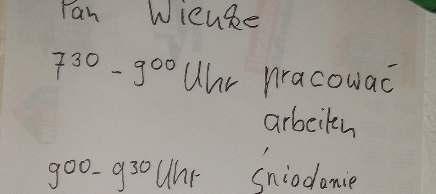 Pan Wicuke
7³⁰ - 9⁰⁰ Uhr pracować
arbeiten
9⁰⁰ - 9³⁰ Uhr śniodanie